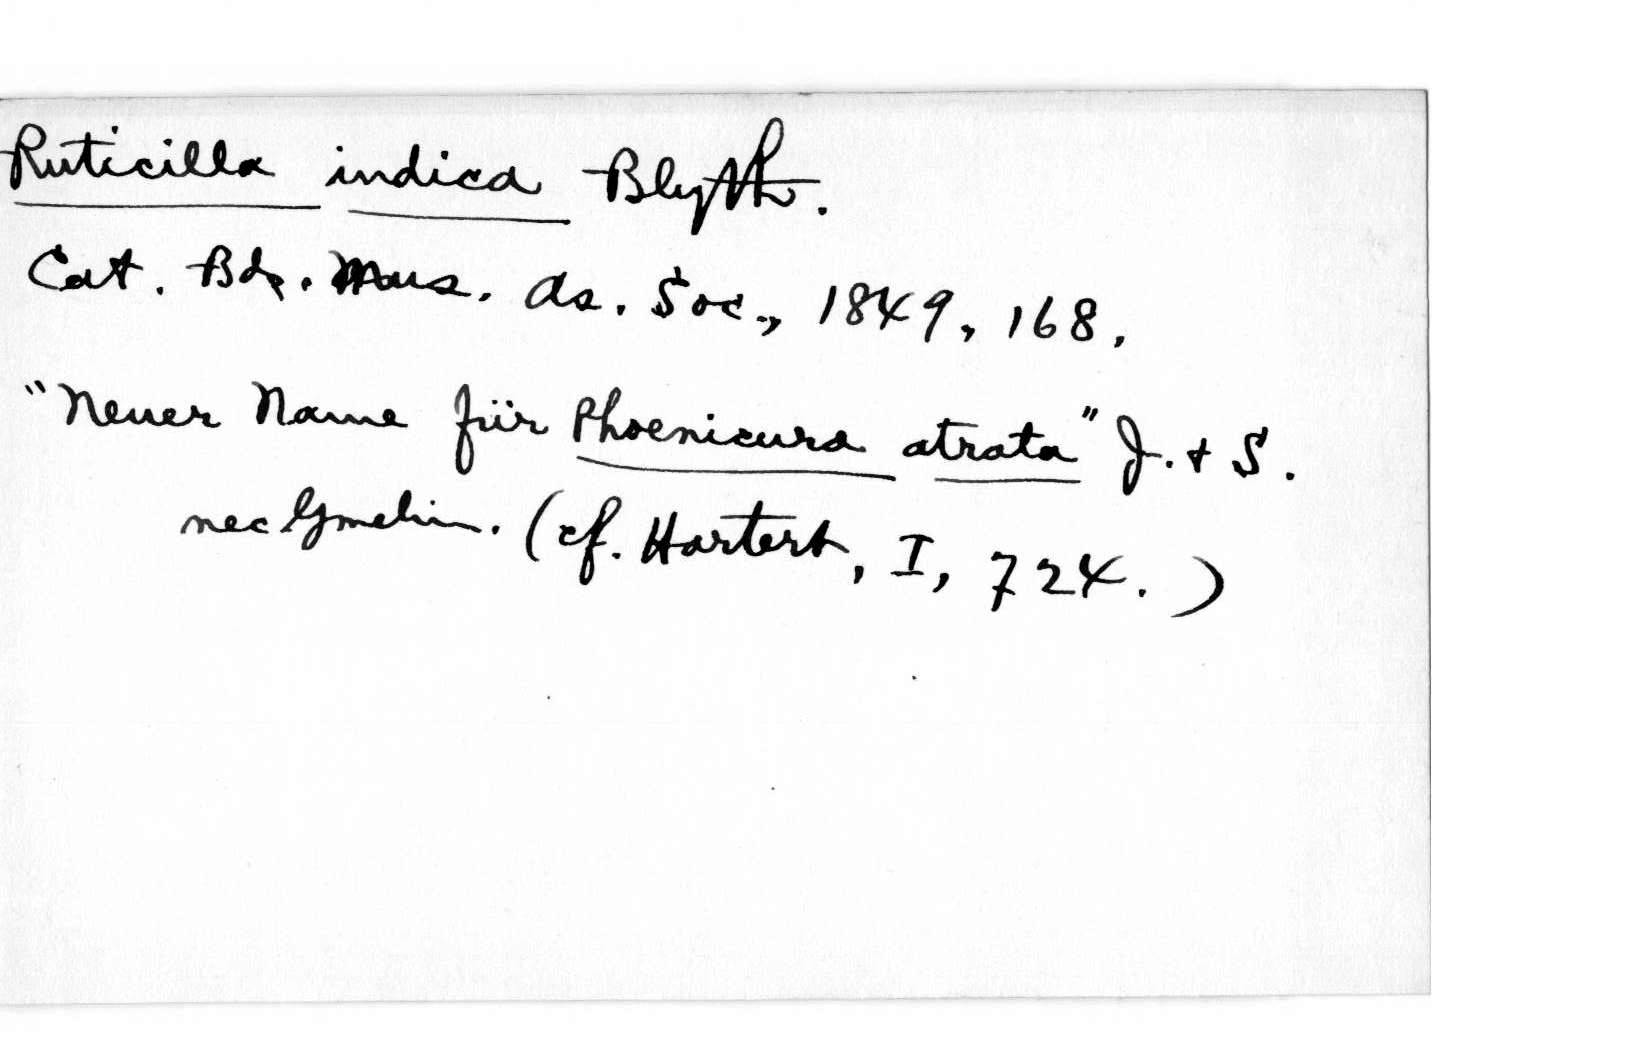 Ruticilla indica Blyth.
Cat. Bds. Mus. As. Soc., 1849, 168.
"Neuer Name für Phoenicura atrata" J. + S.
nec Gmelin. (cf. Hartert, I, 724.)